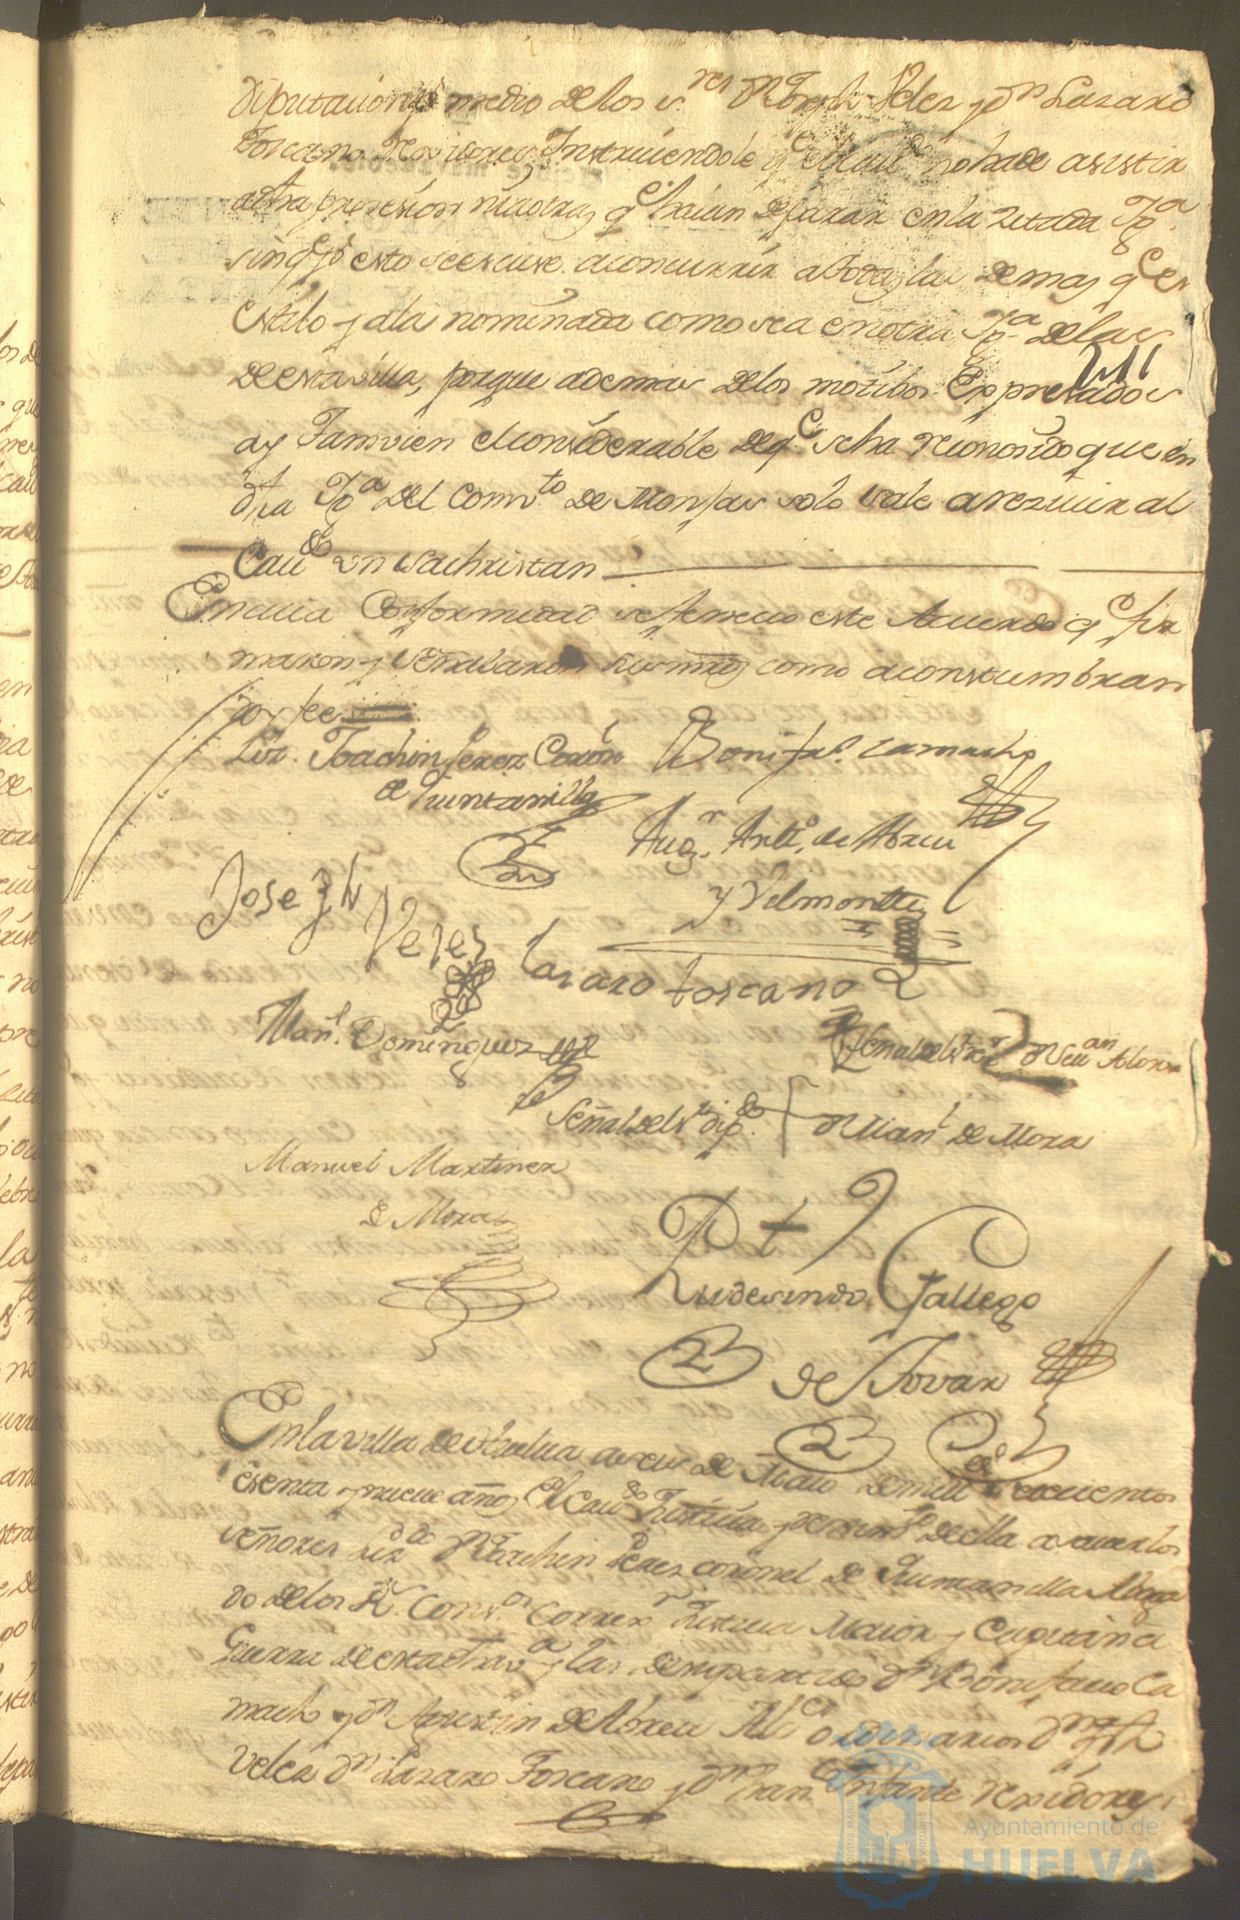 Diputacion p.r medio de los s.res D.n Joseph Velez y D.n Lazaro
Toscano Rexidores Instruiendole q.e el Cau.do no ha de asistir
a dha prosesion mientras q.e haian de parar en la zitada Ygª
sin q.e p.r esto se escuse a concurrir a todas las demas q.e es
estilo y a la nominada como sea en otra Ygª de las
de esta villa, porque ademas de los motibos Expresados
ay Tamvien el considerable de q.e se ha reconosido que en
dha Ygª del Comv.to de Monjas solo sale a rezivir al
Cau.do un sachristan
En cuia Conformidad se feneció este Acuerdo q.e fir
maron y señalaron sus mrds como acostumbran
doy fee
Liz. Joachin Perez Coron.l
de Quintanilla
Bonif.o Camacho
Aug.n Ant.o de Abreu
y Velmonte
Joseph
Velez
Lazaro toscano
Man.l Dominguez
Señal del s.r D.n Seu.an Alonso
Señal del s.r dip.do D.n Man.l de Mora
Manuel Martinez
de Mora
Rudesindo Gallego
de Tovar
En la villa de Huelva a seis de Maio de mill setecientos
sesenta y nueue años el Cau.do Justicia y Reximt.o de ella a saver los
señores Liz.do D.n Joachin Perez coronel de Quintanilla Aboga
do de los R.s Cons.os Correx.r Justicia Maior y Capitan a
Guerra de esta dha v.ª y las de su partido D.n Bonifacio Ca
macho y D.n Agustin de Abreu Alc.es ordinarios D.n Jph
Velez D.n Lazaro Toscano y D.n Fran.co Infante rexidores
211
Ayuntamiento de
HUELVA